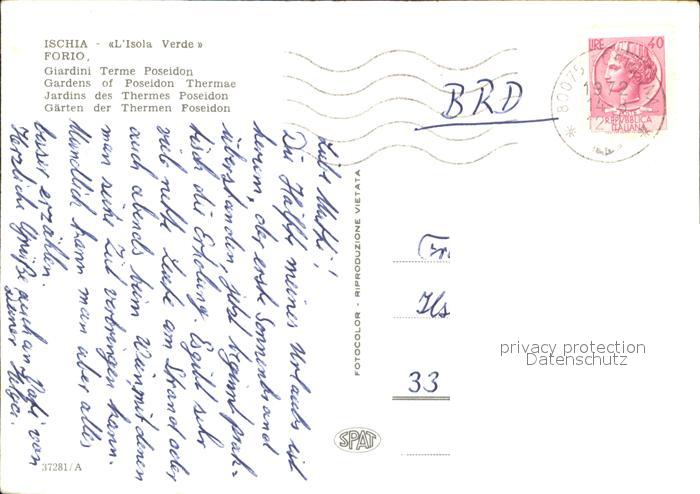 ISCHIA - «L'Isola Verde»
FORIO,
Giardini Terme Poseidon
Gardens of Poseidon Thermae
Jardins des Thermes Poseidon
Gärten der Thermen Poseidon
LIRE 40
REPVBBLICA
ITALIANA
80075
1972
BRD
Liebe Mutti!
Die Hälfte meines Urlaubs ist
herum, der erste Sonnenbrand
überstanden, jetzt beginnt prak-
tisch die Erholung. Es gibt sehr
viele nette Leute am Strand oder
auch abends beim Wein mit denen
man seine Zeit verbringen kann.
Mündlich kann man aber alles
besser erzählen.
Herzliche Grüße auch an Papi von
Deiner Helga.
FOTOCOLOR - RIPRODUZIONE VIETATA
33
privacy protection
Datenschutz
SPAT
37281/A